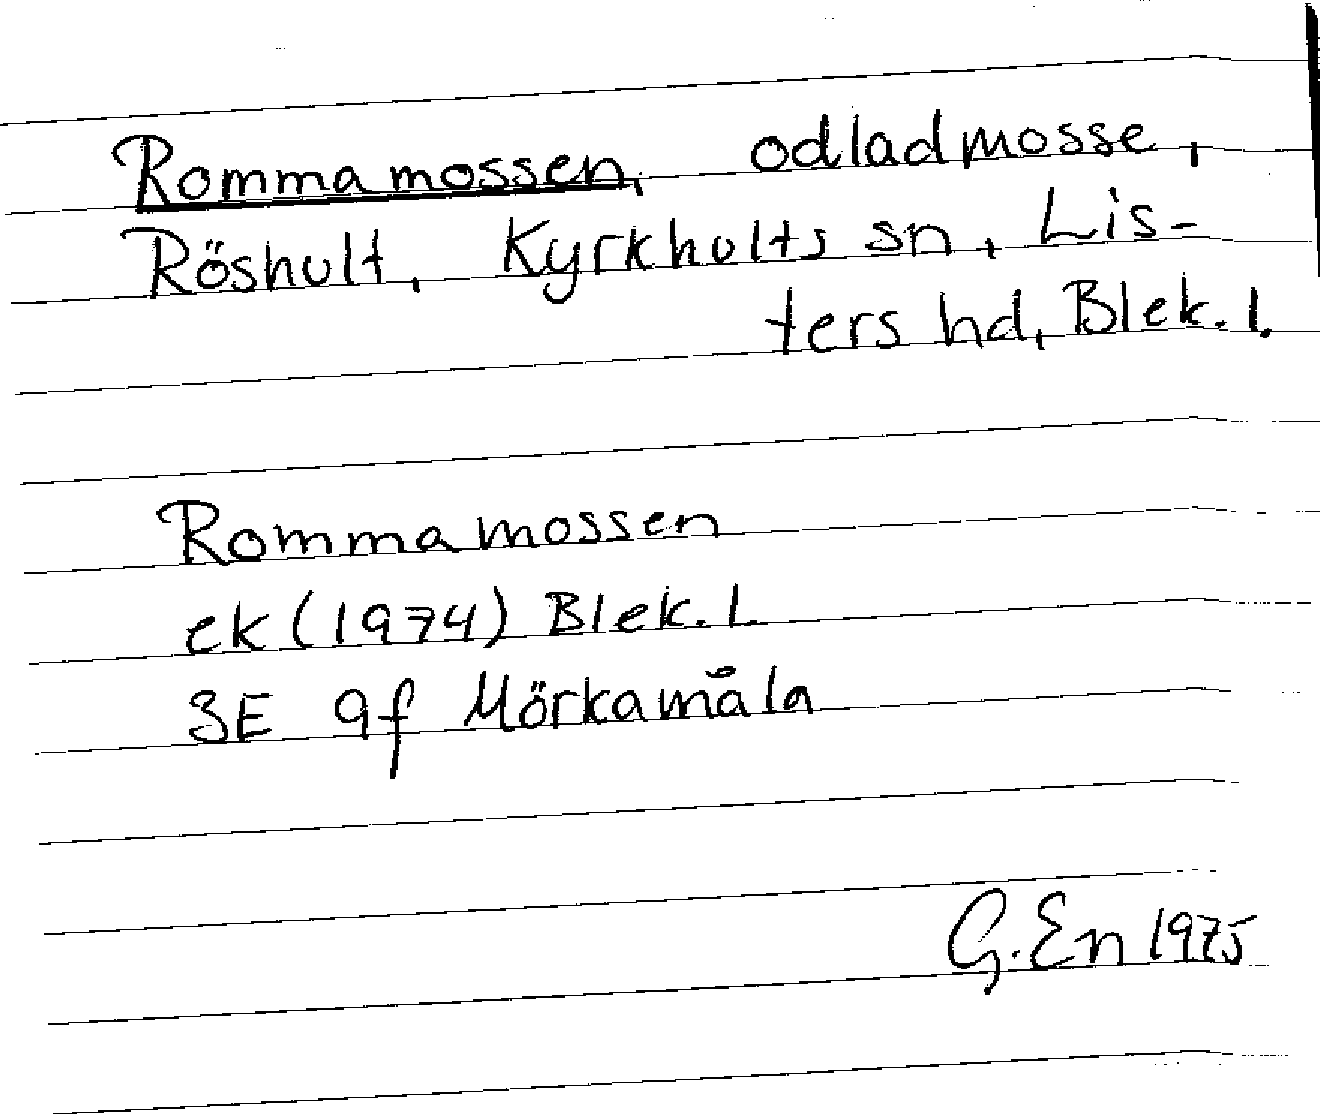 Rommamossen, odlad mosse,
Röshult, Kyrkhults sn, Lis-
ters hd, Blek. l.
Rommamossen
ek (1974) Blek. l.
3E 9f Mörkamåla
G. En 1975